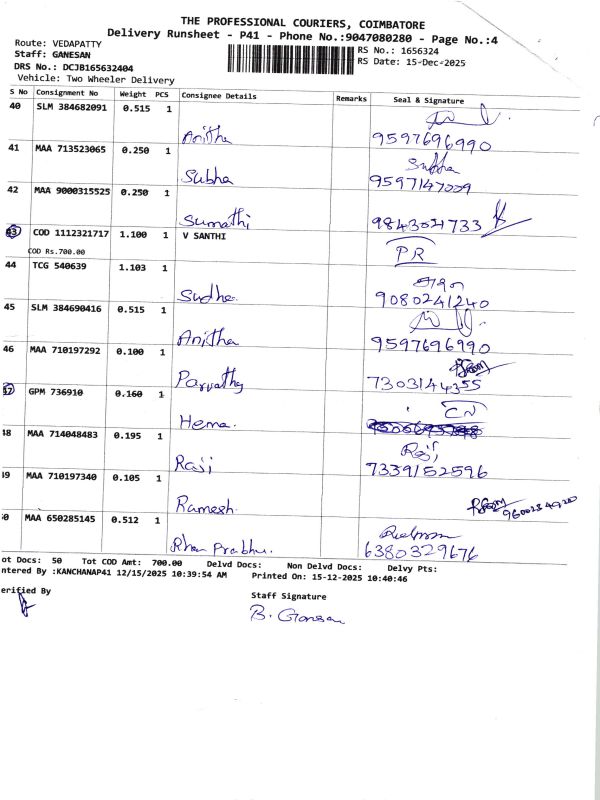 THE PROFESSIONAL COURIERS, COIMBATORE
Delivery Runsheet - P41 - Phone No.:9047080280 - Page No.:4
Route: VEDAPATTY
Staff: GANESAN
DRS No.: DCJB165632404
Vehicle: Two Wheeler Delivery
RS No.: 1656324
RS Date: 15-Dec-2025
S No Consignment No Weight PCS Consignee Details Remarks Seal & Signature
40 SLM 384682091 0.515 1
Anitha 9597696990
41 MAA 713523065 0.250 1 Subha
Subha 9597147009
42 MAA 9000315525 0.250 1
Sumathi 9843021733
43 COD 1112321717 1.100 1 V SANTHI
COD Rs.700.00 PR
44 TCG 540639 1.103 1
Sudha 9080241240
45 SLM 384690416 0.515 1
Anitha 9597696990
46 MAA 710197292 0.100 1
Parvathy 7303144355
47 GPM 736910 0.160 1 CN
Hema
48 MAA 714048483 0.195 1 Raji
Raji 7339152596
49 MAA 710197340 0.105 1
Ramesh
50 MAA 650285145 0.512 1
Khan Prabhu 6380329676
ot Docs: 50 Tot COD Amt: 700.00 Delvd Docs: Non Delvd Docs: Delvy Pts:
ntered By :KANCHANAP41 12/15/2025 10:39:54 AM Printed On: 15-12-2025 10:40:46
erified By Staff Signature
B. Ganesan